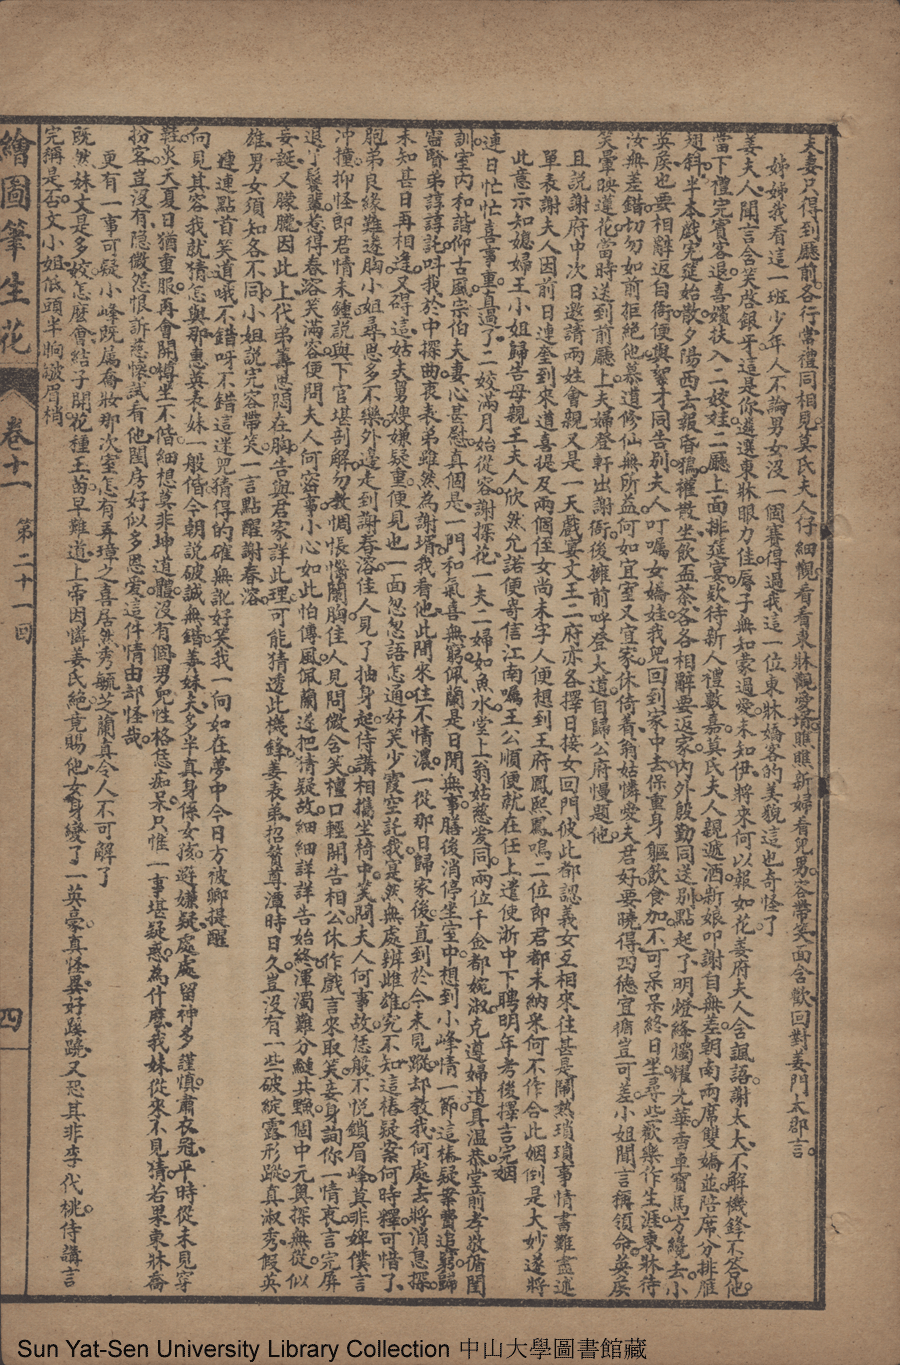 夫妻只得到廳前各行常禮同相見莫氏夫人仔細覩看看東牀覿愛壻瞧瞧新婦看兒男客帶笑面含歡回對姜門太郡言
姊姊我看這一班少年人不論男女沒一個賽得過我這一位東牀嬌客的美貌這也奇怪了
姜夫人聞言含笑啓銀牙這是你遴選東牀眼力佳辱子無知蒙過愛未知伊將來何以報如花姜府夫人含諷語謝太太不解機鋒不答他
當下禮完賓客退喜嬪扶入二姣娃二廳上面排筵宴欵待新人禮數嘉莫氏夫人親遞酒新娘叩謝自無差朝南兩席雙嬌並陪席分排雁
翅斜半本戲完筵始散夕陽西去報昏鴉權散坐飲盃茶各各相辭要返家內外殷勤同送別點起了明燈絳燭耀光華香車寶馬方纔去小
英矦也要相辭返自衙便與翠才同告別夫人叮囑女嬌娃我兒回到家中去保重身軀飲食加不可呆呆終日坐尋些歡樂作生涯東牀待
汝無差錯切勿如前拒絕他慕道修仙無所益何如宜室又宜家休倚着翁姑憐愛夫君好要曉得四德宜循豈可差小姐聞言稱領命英矦
笑暈映蓮花當時送到前廳上夫婦登軒出謝衙後擁前呼登大道自歸公府慢題他
且說謝府中次日邀請兩姓會親又是一天戲宴文王二府亦各擇日接女回門彼此都認義女互相來往甚是鬧熱瑣瑣事情書難盡述
單表謝夫人因前日連奎到來道喜提及兩個侄女尚未字人便想到王府鳳熙鳳鳴二位郎君都未納采何不作合此姻倒是大妙遂將
此意示知媳婦王小姐歸告母親王夫人欣然允諾便寄信江南囑王公順便就在任上遣使浙中下聘明年考後擇吉完姻
連日忙忙喜事重直過了二姣滿月始從容謝探花一夫二婦如魚水堂上翁姑慈愛同兩位千金都婉淑克遵婦道具溫恭堂前孝敬循閨
訓室內和諧仰古風宗伯夫妻心甚慰真個是一門和氣喜無窮佩蘭是日閒無事膳後消停坐室中想到小峰情一節這樁疑案費追窮歸
甯賢弟諄諄託呌我於中探曲衷表弟雖然為謝壻我看他此間來往不情濃一從那日歸家後直到於今未見蹤却教我何處去將消息探
未知甚日再相逢又碍這姑夫舅嫂嫌疑重便見也一面怱怱語怎通好笑少霞空託我寔然無處辨雌雄究不知這樁疑案何時釋可惜了
胞弟良緣難遂胸小姐尋思多不樂外邊走到謝春溶佳人見了抽身起侍講相攜坐椅中笑問夫人何事故恁般不悅鎖眉峰莫非婢僕言
冲撞抑怪郎君情未鍾說與下官堪剖解勿教惆悵惱蘭胸佳人見問微含笑檀口輕開告相公休作戲言來取笑妾身詢你一情衷言完屏
退了鬟鬟輩惹得春溶笑滿容便問夫人何密事小心如此怕傳風佩蘭遂把情疑故細細詳詳告始終渾濁難分鰱共鯉個中元奧探無從似
妄誕又朦朧因此上代弟籌思悶在胸告與君家詳此理可能猜透此機鋒姜表弟招贅尊潭時日久豈沒有一些破綻露形蹤真淑秀假英
雄男女須知各不同小姐說完容帶笑一言點醒謝春溶
連連點首笑道哦不錯呀不錯這迷兒猜得的確無訛好笑我一向如在夢中今日方被卿提醒
向見其容我就猜怎與那惠英表妹一般偕今朝說破誠無錯姜妹夫多半真身係女孩避嫌疑處處留神多謹慎肅衣冠平時從未見穿
鞋炎天夏日猶重服再會開樽坐不偕細想莫非坤道體沒有個男兒性格恁痴呆只惟一事堪疑惑為什麼我妹從來不見猜若果東牀喬
扮客豈沒有隱微怨恨訴慈懷試看他閨房好似多恩愛這件情由却怪哉
更有一事可疑小峰既屬喬妝那次室怎有弄璋之喜居然秀毓芝蘭真令人不可解了
既然妹丈是多姣怎麼會結子開花種玉苗早難道上帝因憐姜氏絕竟賜他女身變了一英豪真怪異好蹊蹺又恐其非李代桃侍講言
完稱是否文小姐低頭半晌皺眉梢
繪圖筆生花
卷十一
第二十一回
四
Sun Yat-Sen University Library Collection 中山大學圖書館藏